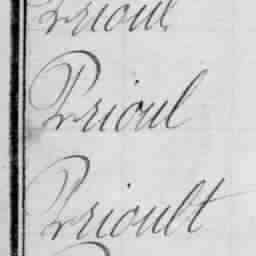 Prioul
Prioul
Prioult